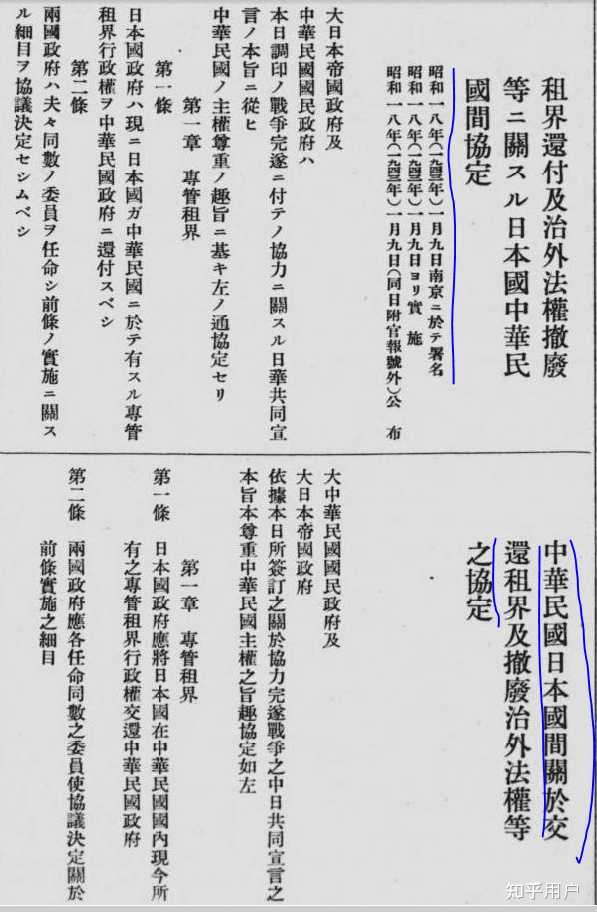 租界還付及治外法權撤廢
等ニ關スル日本國中華民
國間協定
昭和一八年(一九四三年)一月九日南京ニ於テ署名
昭和一八年(一九四三年)一月九日ヨリ實施
昭和一八年(一九四三年)一月九日(同日附官報號外)公布
大日本帝國政府及
中華民國國民政府ハ
本日調印ノ戰爭完遂ニ付テノ協力ニ關スル日華共同宣
言ノ本旨ニ從ヒ
中華民國ノ主權尊重ノ趣旨ニ基キ左ノ通協定セリ
第一章 專管租界
第一條
日本國政府ハ現ニ日本國ガ中華民國ニ於テ有スル專管
租界行政權ヲ中華民國政府ニ還付スベシ
第二條
兩國政府ハ夫々同數ノ委員ヲ任命シ前條ノ實施ニ關ス
ル細目ヲ協議決定セシムベシ
中華民國日本國間關於交
還租界及撤廢治外法權等
之協定
大中華民國國民政府及
大日本帝國政府
依據本日所簽訂之關於協力完遂戰爭之中日共同宣言之
本旨本尊重中華民國主權之旨趣協定如左
第一章 專管租界
第一條 日本國政府應將日本國在中華民國國內現今所
有之專管租界行政權交還中華民國政府
第二條 兩國政府應各任命同數之委員使協議決定關於
前條實施之細目
知乎用户